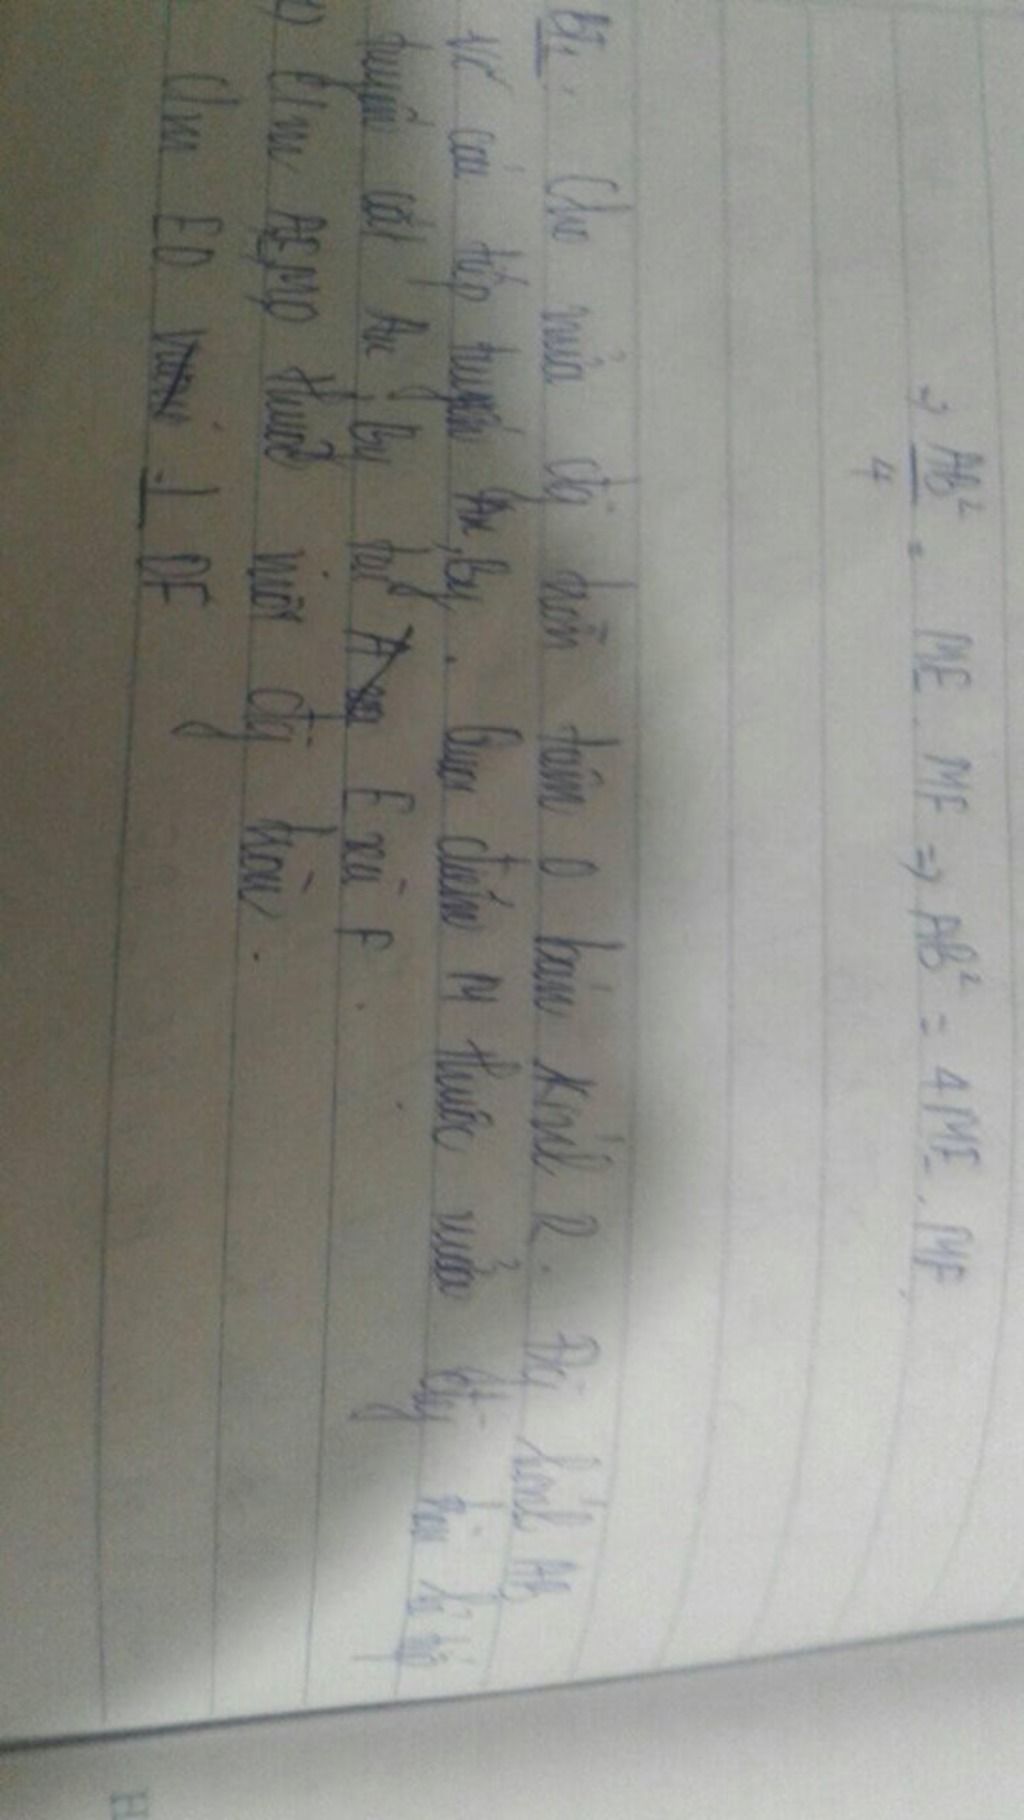 ⇒ AB²/4 = ME . MF ⇒ AB² = 4ME . MF
B1. Cho nửa đg tròn tâm O bán kính R. Đg kính AB
Vẽ các tiếp tuyến Ax, By. Qua điểm M thuộc nửa đg tròn kẻ tiếp
tuyến cắt Ax, By tại E và F.
Cm AEMO thuộc một đg tròn.
Cm EO ⊥ OF